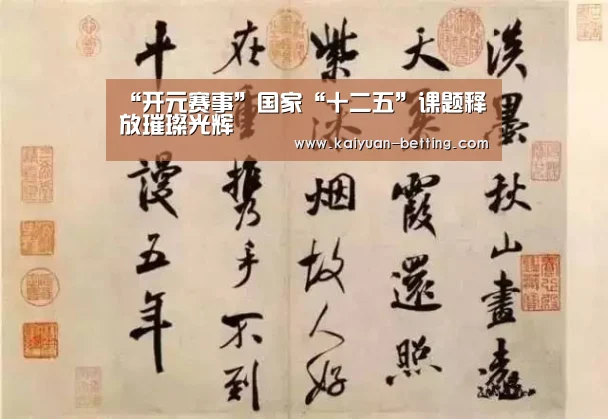 “开元赛事”国家“十二五”课题释
放璀璨光辉
www.kaiyuan-betting.com
淡墨秋山畫遠
天霞還照
紫添烟故人好
在重携手不到
平謾五年